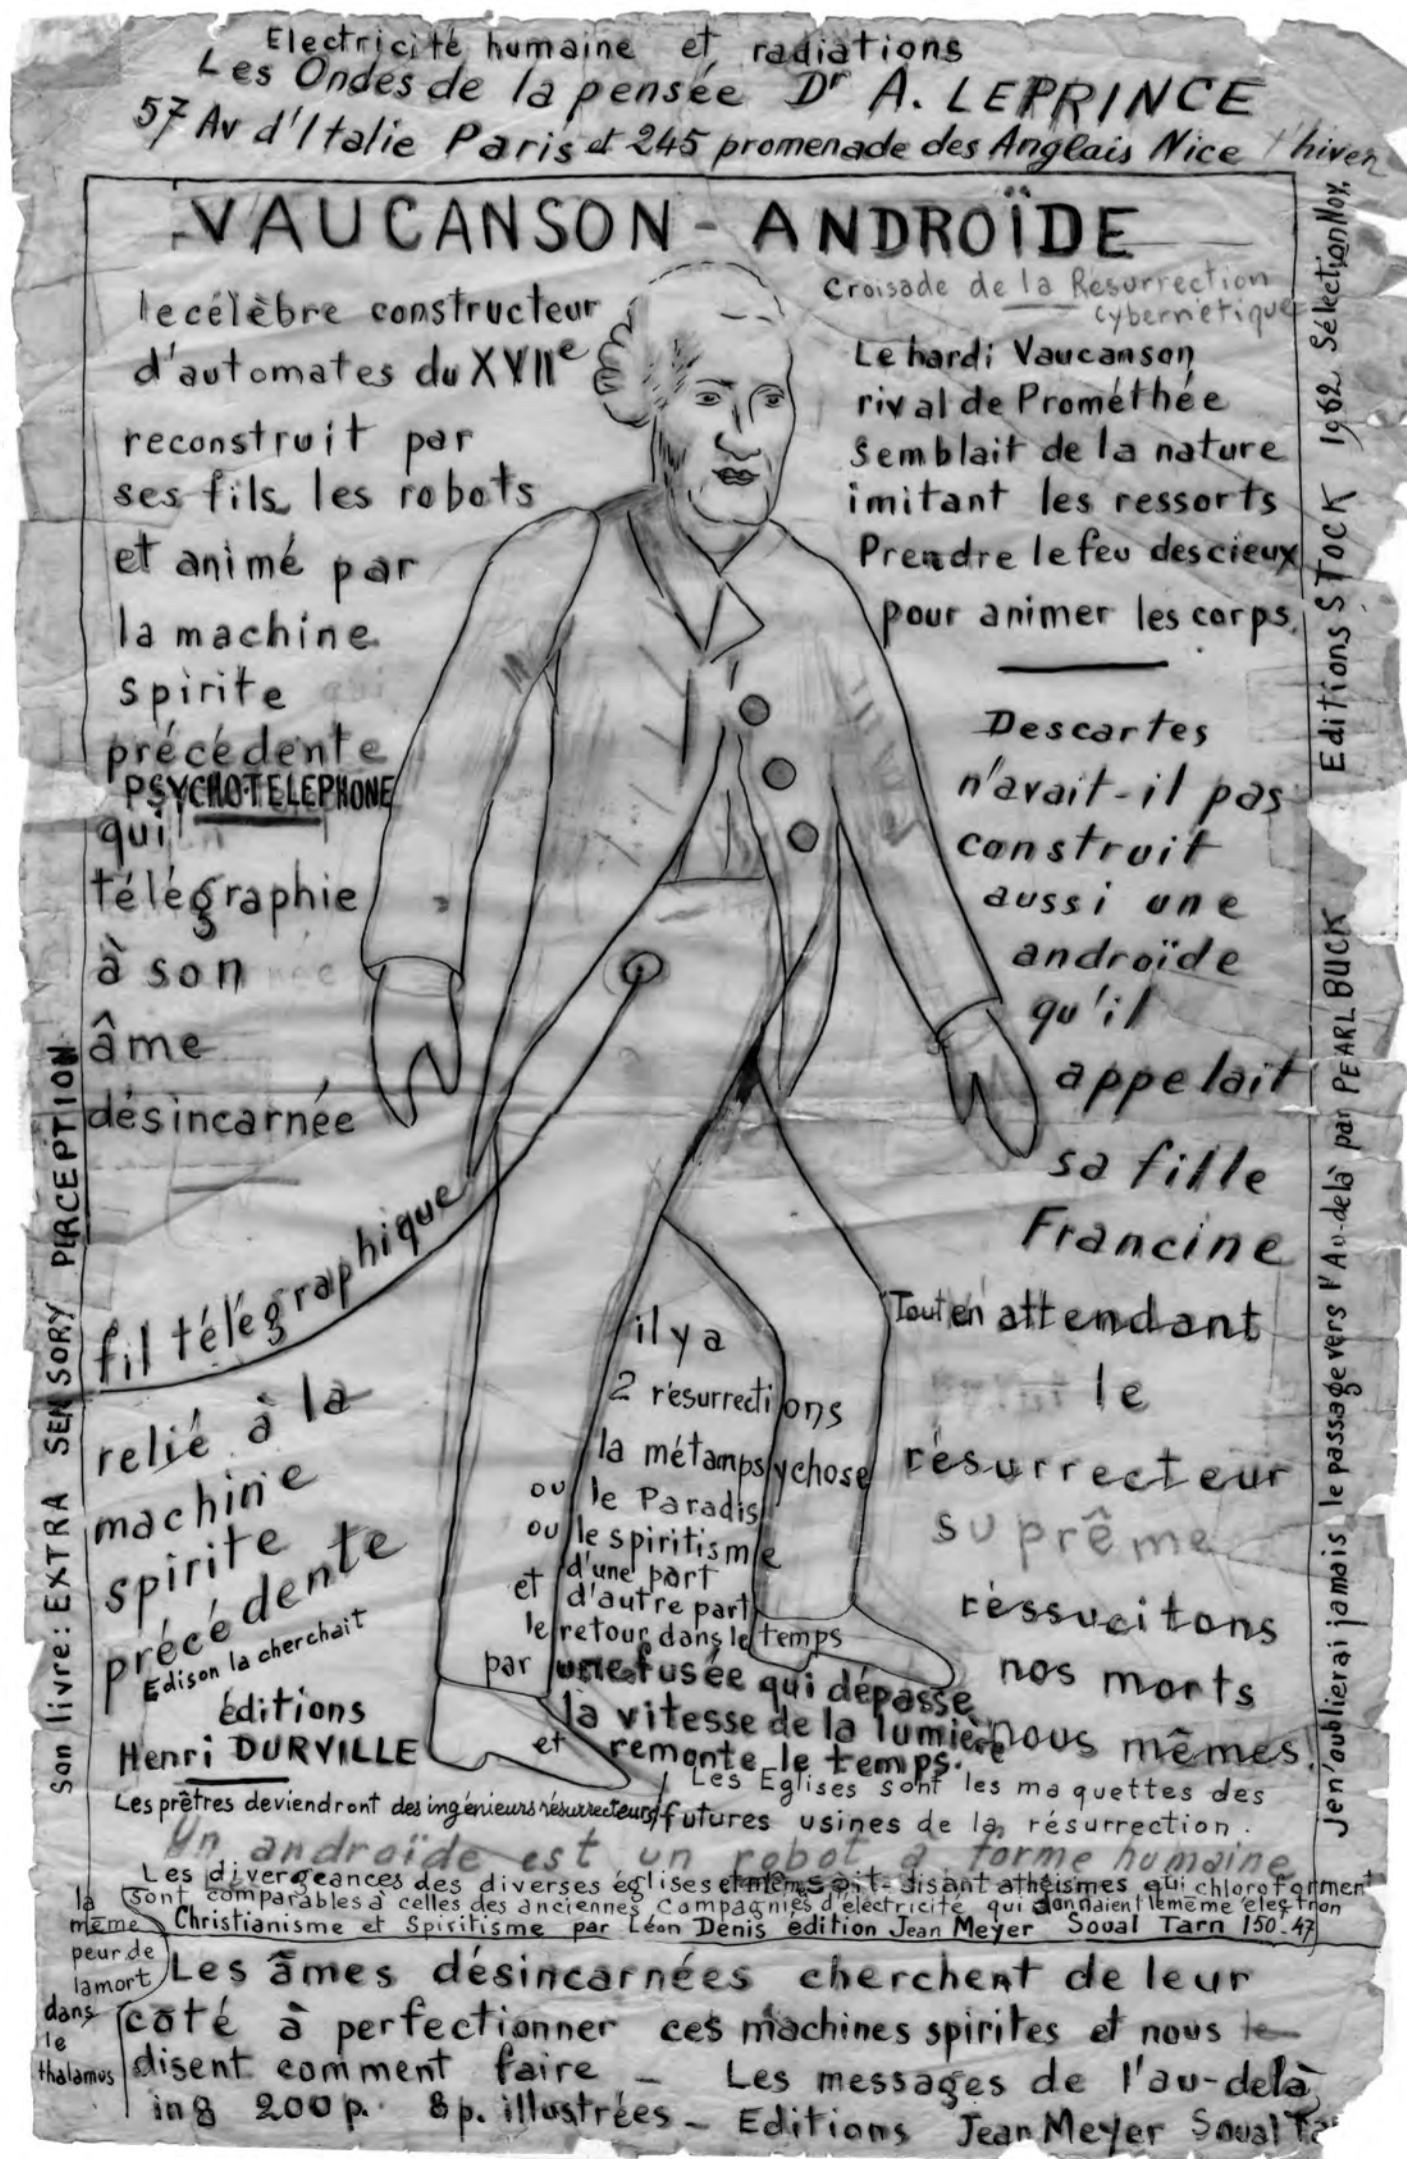 Electricité humaine et radiations
Les Ondes de la pensée Dr A. LEPRINCE
57 Av d'Italie Paris et 245 promenade des Anglais Nice l'hiver
VAUCANSON - ANDROÏDE
Croisade de la Résurrection
cybernétique
le célèbre constructeur
d'automates du XVIIe
reconstruit par
ses fils les robots
et animé par
la machine
spirite
précédente
PSYCHO-TELEPHONE
qui
télégraphie
à son
âme
désincarnée
fil télégraphique
relié à la
machine
spirite
précédente
Edison la cherchait
éditions
Henri DURVILLE
Le hardi Vaucanson
rival de Prométhée
Semblait de la nature
imitant les ressorts
Prendre le feu des cieux
pour animer les corps.
Descartes
n'avait-il pas
construit
aussi une
androïde
qu'il
appelait
sa fille
Francine
Tout en attendant
le
résurrecteur
suprême
réssucitons
nos morts
nous mêmes.
il y a
2 résurrections
la métampsychose
ou le Paradis
ou le spiritisme
d'une part
et d'autre part
le retour dans le temps
par une fusée qui dépasse
la vitesse de la lumière
et remonte le temps.
Les Eglises sont les maquettes des
Les prêtres deviendront des ingénieurs résurrecteurs/futures usines de la résurrection.
Un androïde est un robot à forme humaine
Les divergeances des diverses églises et mêmes soit-disant athéismes qui chloroforment
sont comparables à celles des anciennes Compagnies d'électricité qui donnaient le même électron
Christianisme et Spiritisme par Léon Denis édition Jean Meyer Soual Tarn 150-47
la
même
peur de
la mort
dans
le
thalamus
Les âmes désincarnées cherchent de leur
coté à perfectionner ces machines spirites et nous le
disent comment faire - Les messages de l'au-delà
in 8 200 p. 8 p. illustrées - Editions Jean Meyer Soual
Son livre: EXTRA SENSORY PERCEPTION
Je n'oublierai jamais le passage vers l'Au-delà par PEARL BUCK Editions STOCK 1962 Sélection Nov.